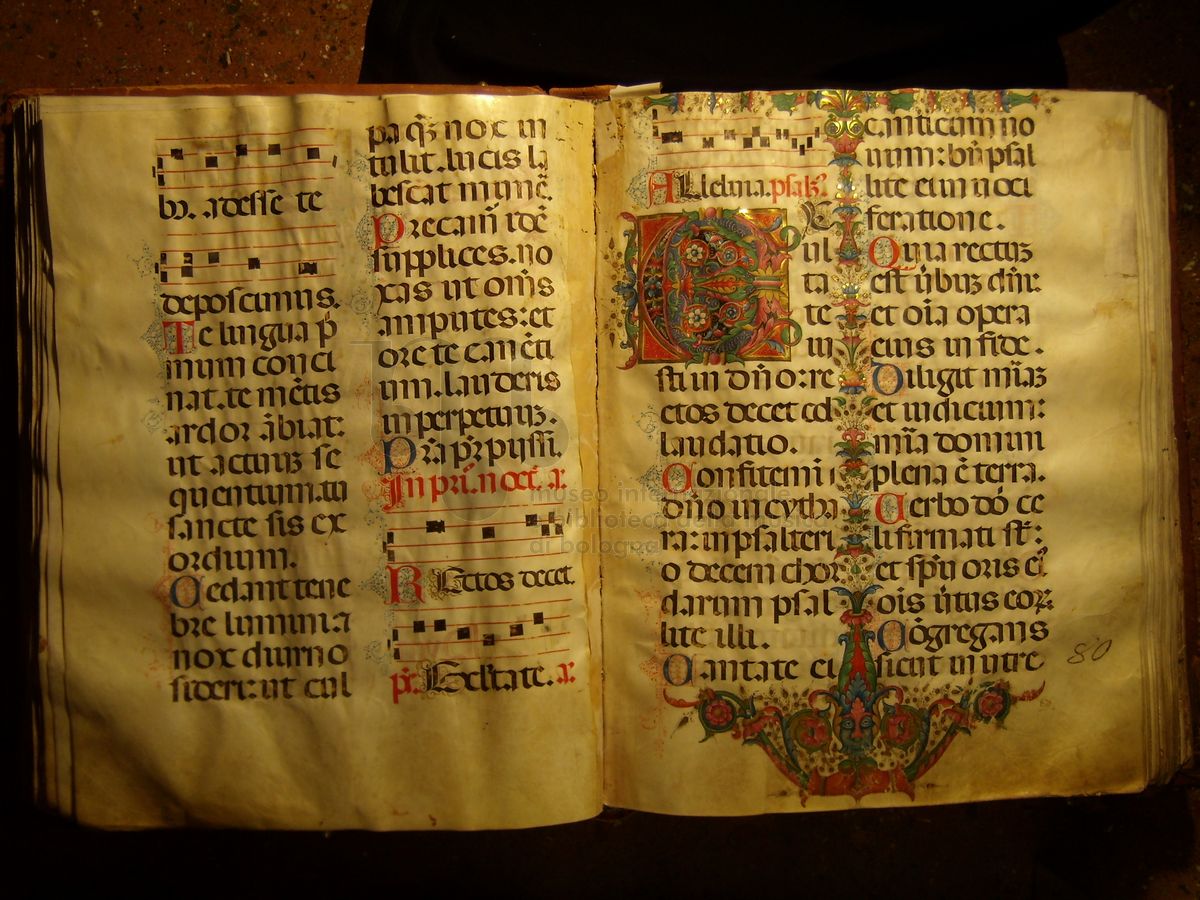 bo. adesse te
deposcimus.
Te lingua p̄
mum conci
nat. te mētis
ardor ābiat:
ut actus se
quentium tu
sancte sis ex
ordium.
Cedant tene
bre lumini. a
nox diurno
sideri: ut cul
pa qȝ nox in
tulit. lucis la
bescat munē.
Precam̄ idē
supplices. no
xas ut om̄s
amputes: et
ore te canēti
um. lauderis
in perpetuȝ.
Pr̄a pr̄ pijssi.
In pri. noct. a:
Rectos decet.
ps. Exultate. a:
Alleluia. psalȝ.
EX
ul
ta
te
iu
sti in dn̄o: re
ctos decet col
laudatio.
Confitemi i
dn̄o in cytha
ra: in psalteri
o decem chor
darum psal
lite illi.
Cantate ei
canticum no
uum: bn̄ psal
lite ei in uoci
feratione.
Quia rectuȝ
est ūbuȝ dn̄i:
et oīa opera
eius in fide.
Diligit mīaȝ
et iudicium:
mīa domini
plena ē terra.
Uerbo dō ce
li firmati st̄:
et spū oris ei
ois ūtus eoꝝ.
Cōgregans
sicut in utre
80
museo internazionale
biblioteca della musica
di bologna